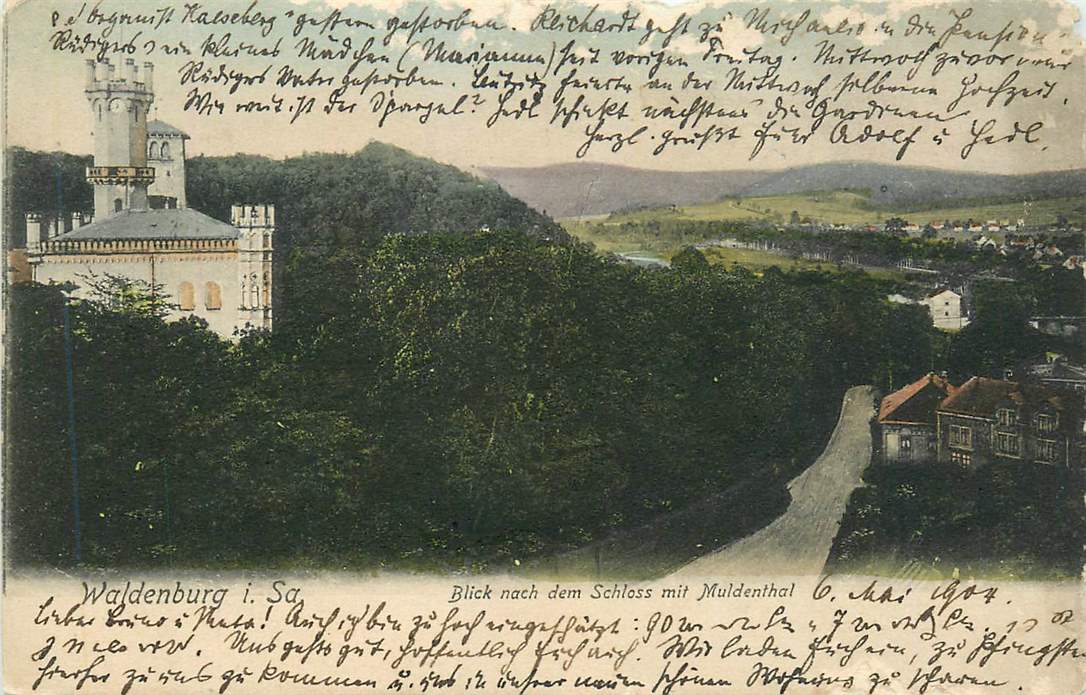 organist Kaeseberg gestern gestorben. Reichardt geht zu Michaelis in den Pension
Rüdigers ein kleines Mädchen (Marianne) seit vorigem Freitag. Mittwoch zuvor war
Rüdigers Vater gestorben. feiern an der Mittwoch silberne Hochzeit.
Wie weit ist der Spargel? Hedl schickt nächstens die Gardenen
Herzl. grüßt Euer Adolf u Hedl.
Waldenburg i. Sa.
Blick nach dem Schloss mit Muldenthal
6. Mai 1904.
Lieber Bruno u Meta! Auch ich bin zu hoch eingeschätzt: 90 M
Uns gehts gut, hoffentlich Euch auch. Wir laden Euch ein, zu Pfingsten
hierher zu uns zu kommen u. uns in unsrer neuen schönen Wohnung zu schauen.